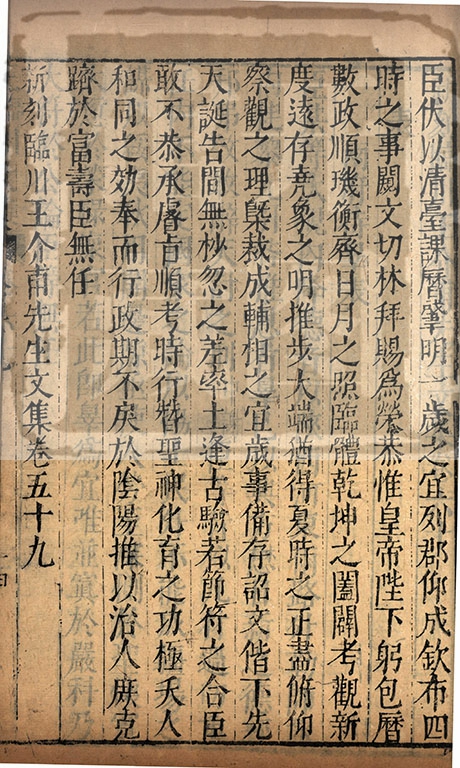 臣伏以清臺課曆肇明一歲之宜列郡仰成欽布四
時之事闕文切林拜賜為榮恭惟皇帝陛下躬包曆
數政順璣衡齊日月之照臨體乾坤之闔闢考觀新
度遠存堯象之明推步大端猶得夏時之正盡俯仰
察觀之理槩裁成輔相之宜歲事備存詔文偕下先
天誕告間無杪忽之差率土逢占驗若節符之合臣
敢不恭承睿旨順考時行贊聖神化育之功極天人
和同之効奉而行政期不戾於陰陽推以治人庶克
躋於富壽臣無任
新刻臨川王介甫先生文集卷五十九